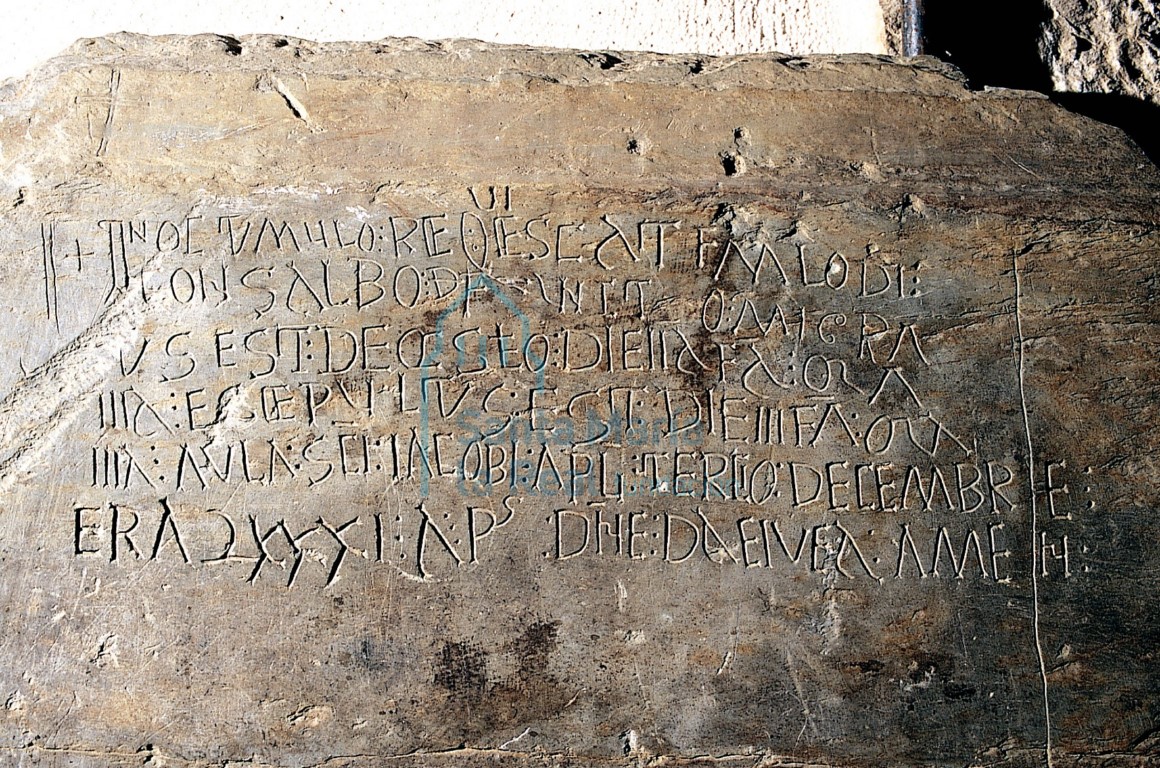 + IN OC TUMULO: REQUIESCAIT FMLO DI:
CON SALBO: DFUNTT
O: MIGRA
US EST: DE OC SCLO: DIE IIA FA: ORA
IIIA: E SEPULUS: EST: DIE III FA: ORA
IIIA: AULA: SCI: IACOBI: APLI: TERCIO: DECEMBRE:
ERA XXXI: APS DNE: DA EI VEA: AMEN:
Santa María